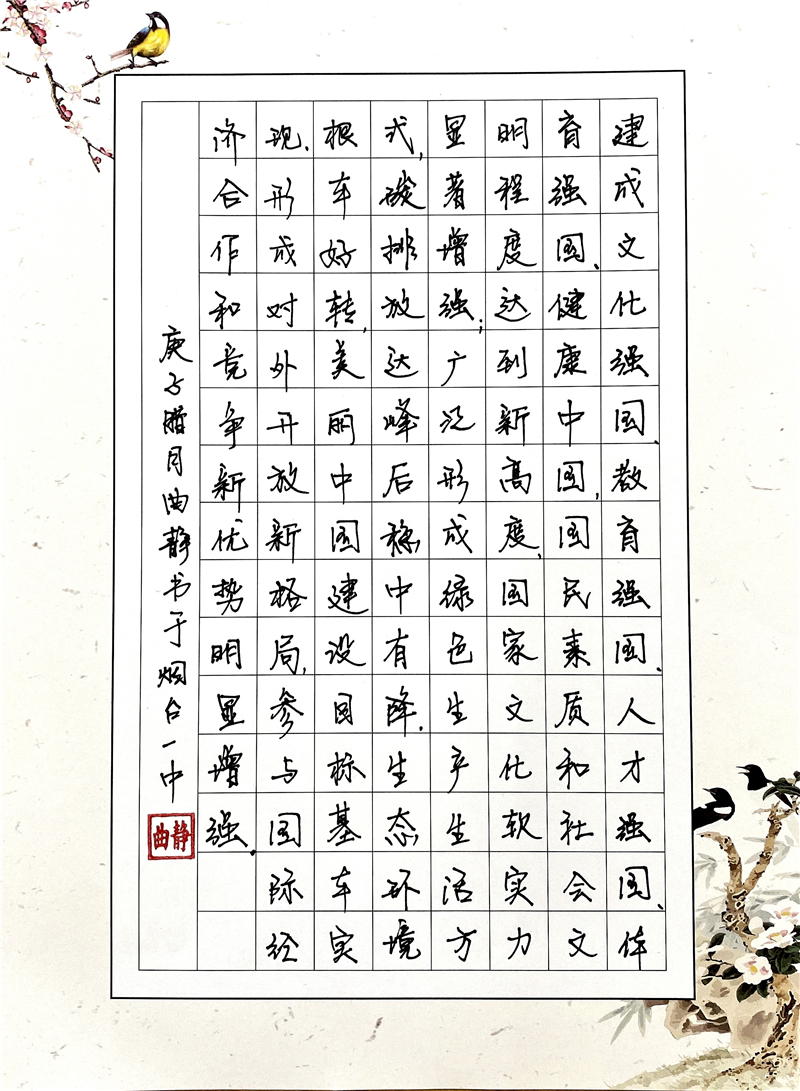 建成文化强国、教育强国、人才强国、体
育强国、健康中国,国民素质和社会文
明程度达到新高度,国家文化软实力
显著增强;广泛形成绿色生产生活方
式,碳排放达峰后稳中有降.生态环境
根本好转,美丽中国建设目标基本实
现.形成对外开放新格局,参与国际经
济合作和竞争新优势明显增强.
庚子腊月曲静书于烟台一中
曲静